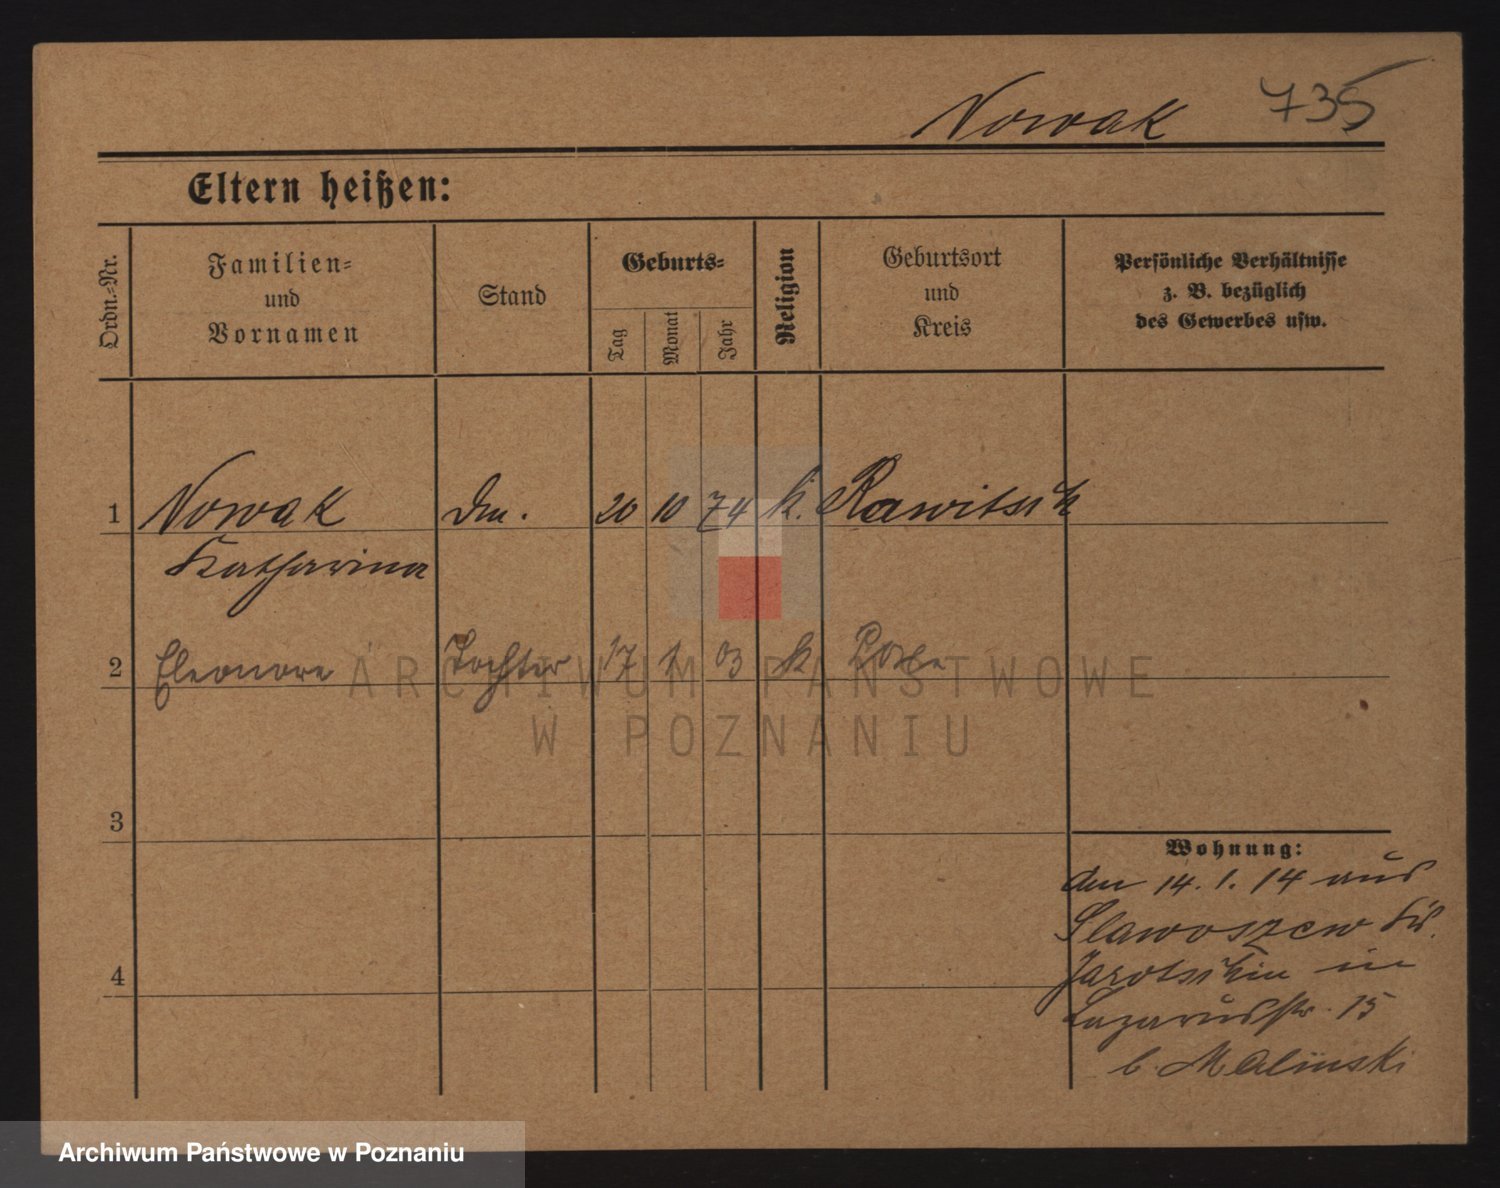 Nowak 735
Eltern heißen:
Ordn.-Nr.
Familien-
und
Vornamen
Stand
Geburts-
Tag
Monat
Jahr
Religion
Geburtsort
und
Kreis
Persönliche Verhältnisse
z. B. bezüglich
des Gewerbes usw.
1 Nowak 20 10 74 k. Rawitsch
Katharina
2 Eleonore Tochter 17 1 03 k
ARCHIWUM PAŃSTWOWE
W POZNANIU
3
Wohnung:
den 14. 1. 14 aus
Slawoszew Kr.
4
Jarotschin in
Lazarusstr. 15
b. Malinski
Archiwum Państwowe w Poznaniu